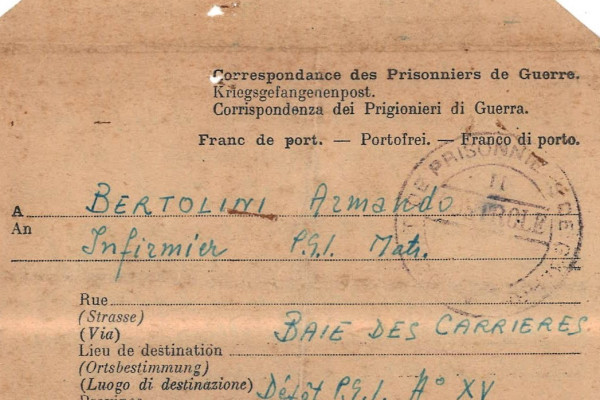 Correspondance des Prisonniers de Guerre.
Kriegsgefangenenpost.
Corrispondenza dei Prigionieri di Guerra.
Franc de port. — Portofrei. — Franco di porto.
PRISONNIE DE
A BERTOLINI Armando
An
Infirmier P.G.I. Matr.
Rue
(Strasse)
(Via) BAIE DES CARRIERES
Lieu de destination
(Ortsbestimmung)
(Luogo di destinazione) Dépôt P.G.I. N° XV